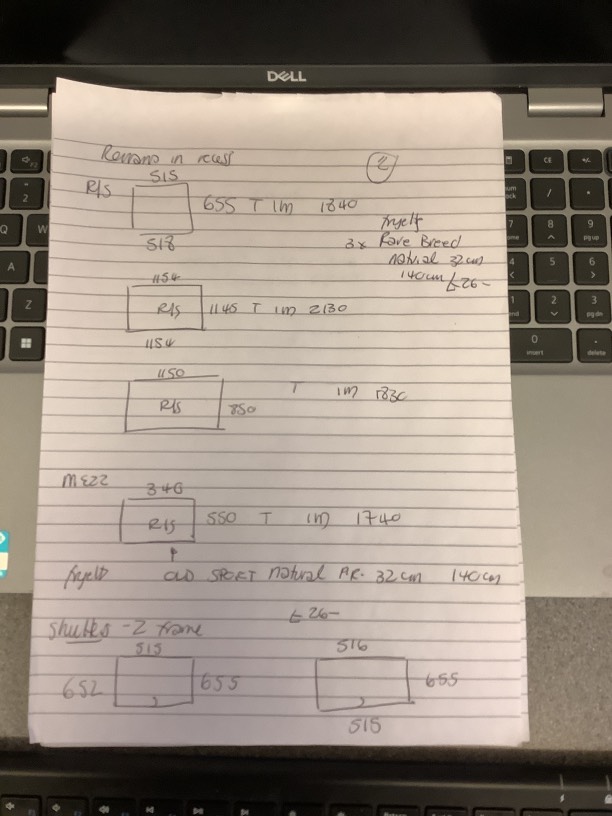 DELL
Romans in recess
2
515
R/S 655 T 1M 1840
518
fryelt
3x Rare Breed
natural 32cm
140cm £26-
1154
R/S 1145 T 1M 2130
1154
1150
R/S 850 T 1M 1830
MEZZ
346
R/S 550 T 1M 1740
fryelt OLD SPORT natural P.R. 32cm 140cm
£26-
Shutters - Z frame
515 516
652 655 655
515